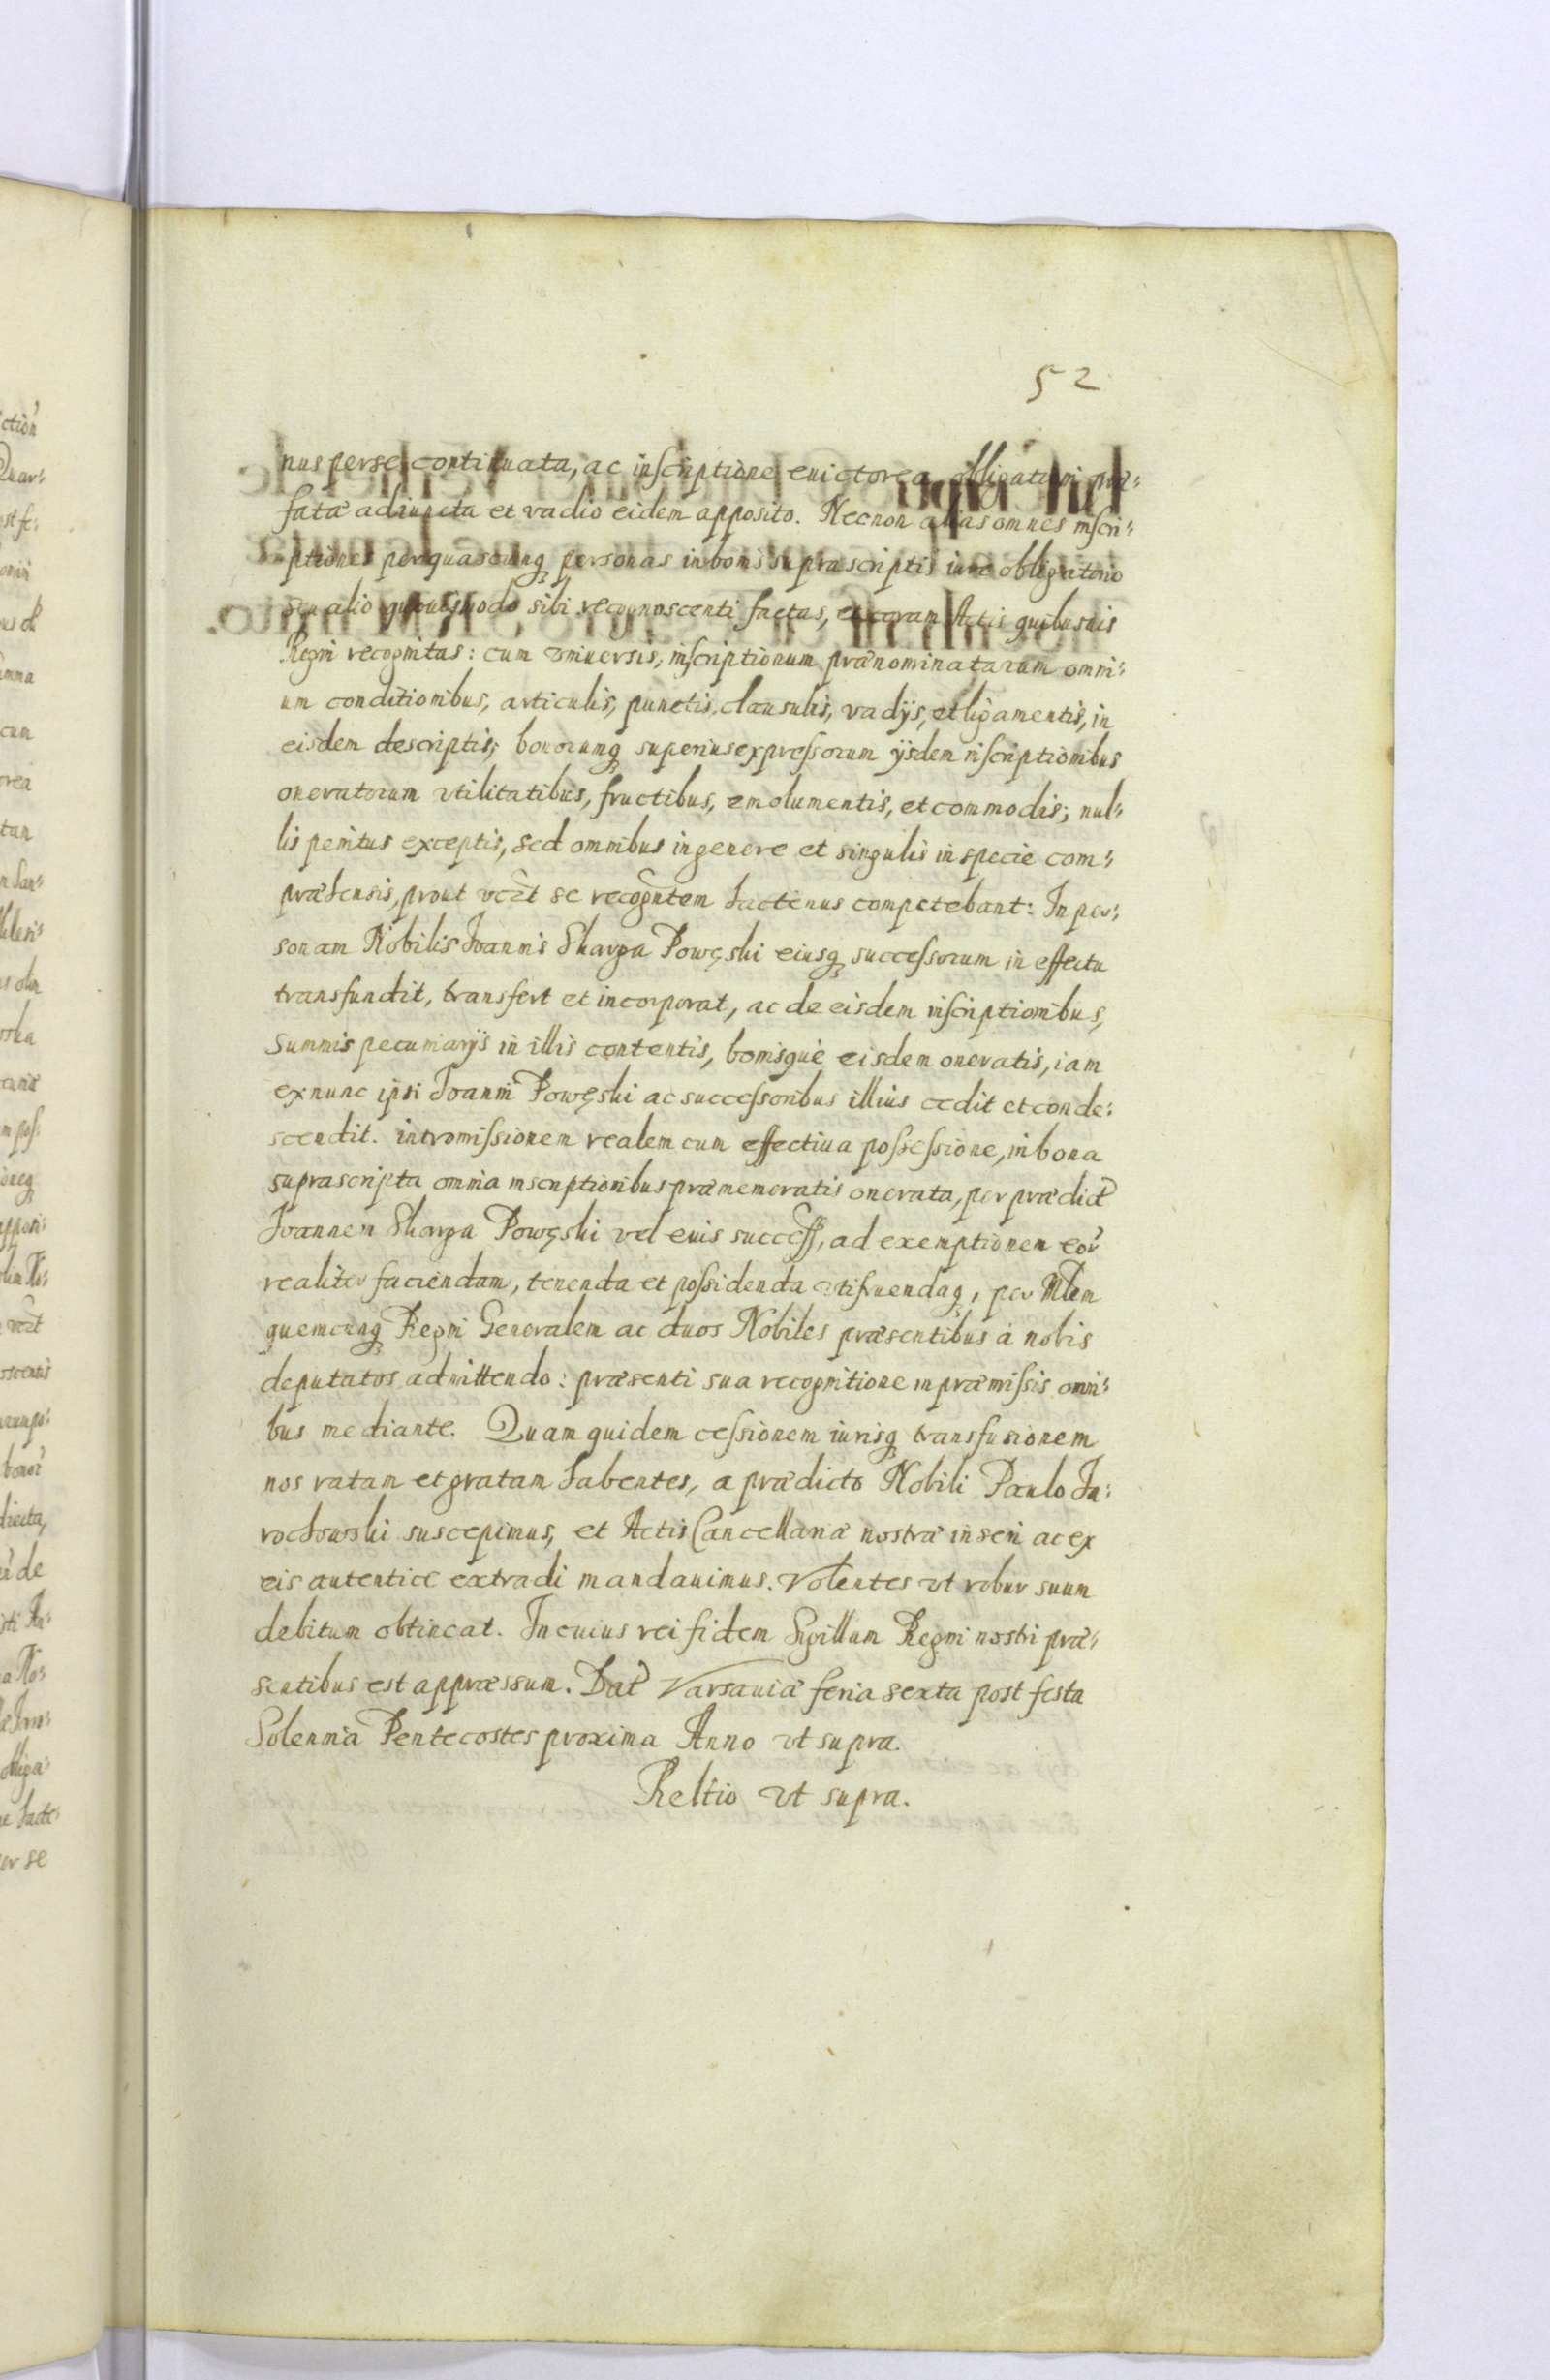 52
nus per se continuata, ac inscriptione euictorea obligationi præ:
fatæ adiuncta et vadio eidem apposito. Necnon alias omnes inscri:
ptiones per quascunq personas in bonis supra scriptis iure obligatorio
seu alio quouismodo sibi recognoscenti factas, et coram Actis quibusuis
Regni recognitas: cum vniuersis, inscriptionum prænominatarum omni:
um conditionibus, articulis, punctis, clausulis, vadijs, et ligamentis, in
eisdem descriptis; bonorumq superius expressorum ijsdem inscriptionibus
oneratorum vtilitatibus, fructibus, emolumentis, et commodis; nul:
lis penitus exceptis, sed omnibus in genere et singulis in specie com:
præhensis, prout se recogntem hactenus competebant: In per:
sonam Nobilis Ioannis Skarga Powęski eiusq successorum in effectu
transfundit, transfert et incorporat, ac de eisdem inscriptionibus,
summis pecuniarijs in illis contentis, bonisque eisdem oneratis, iam
ex nunc ipsi Ioanni Powęski ac successoribus illius cedit et conde:
scendit. intromissionem realem cum effectiua possessione, in bona
suprascripta omnia inscriptionibus præmemoratis onerata, per prædict
Ioannem Skarga Powęski vel eius success, ad exemptionem eor
realiter faciendam, tenenda et possidenda vtifruendaq, per Mlem
quemcunq Regni Generalem ac duos Nobiles præsentibus à nobis
deputatos admittendo: præsenti sua recognitione in præmissis omni:
bus mediante. Quam quidem cessionem iurisq transfusionem
nos ratam et gratam habentes, a prædicto Nobili Paulo Ia:
rochowski suscepimus, et Actis Cancellariæ nostræ inseri ac ex
eis autentice extradi mandauimus. Volentes vt robur suum
debitum obtineat. In cuius rei fidem Sigillum Regni nostri præ:
sentibus est appræssum. Dat Varsauiæ feria sexta post festa
Solennia Pentecostes proxima Anno vt supra.
Reltio vt supra.